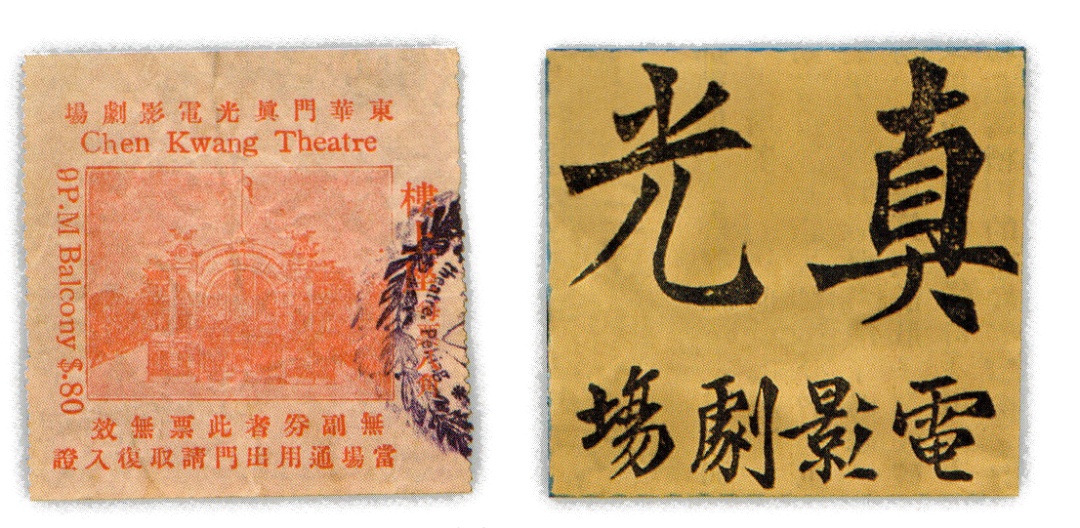 東華門眞光電影劇場
Chen Kwang Theatre
9P.M Balcony $.80
樓
theatre, Peking
無副券者此票無效
當場通用出門請取復入證
真光
電影劇塲